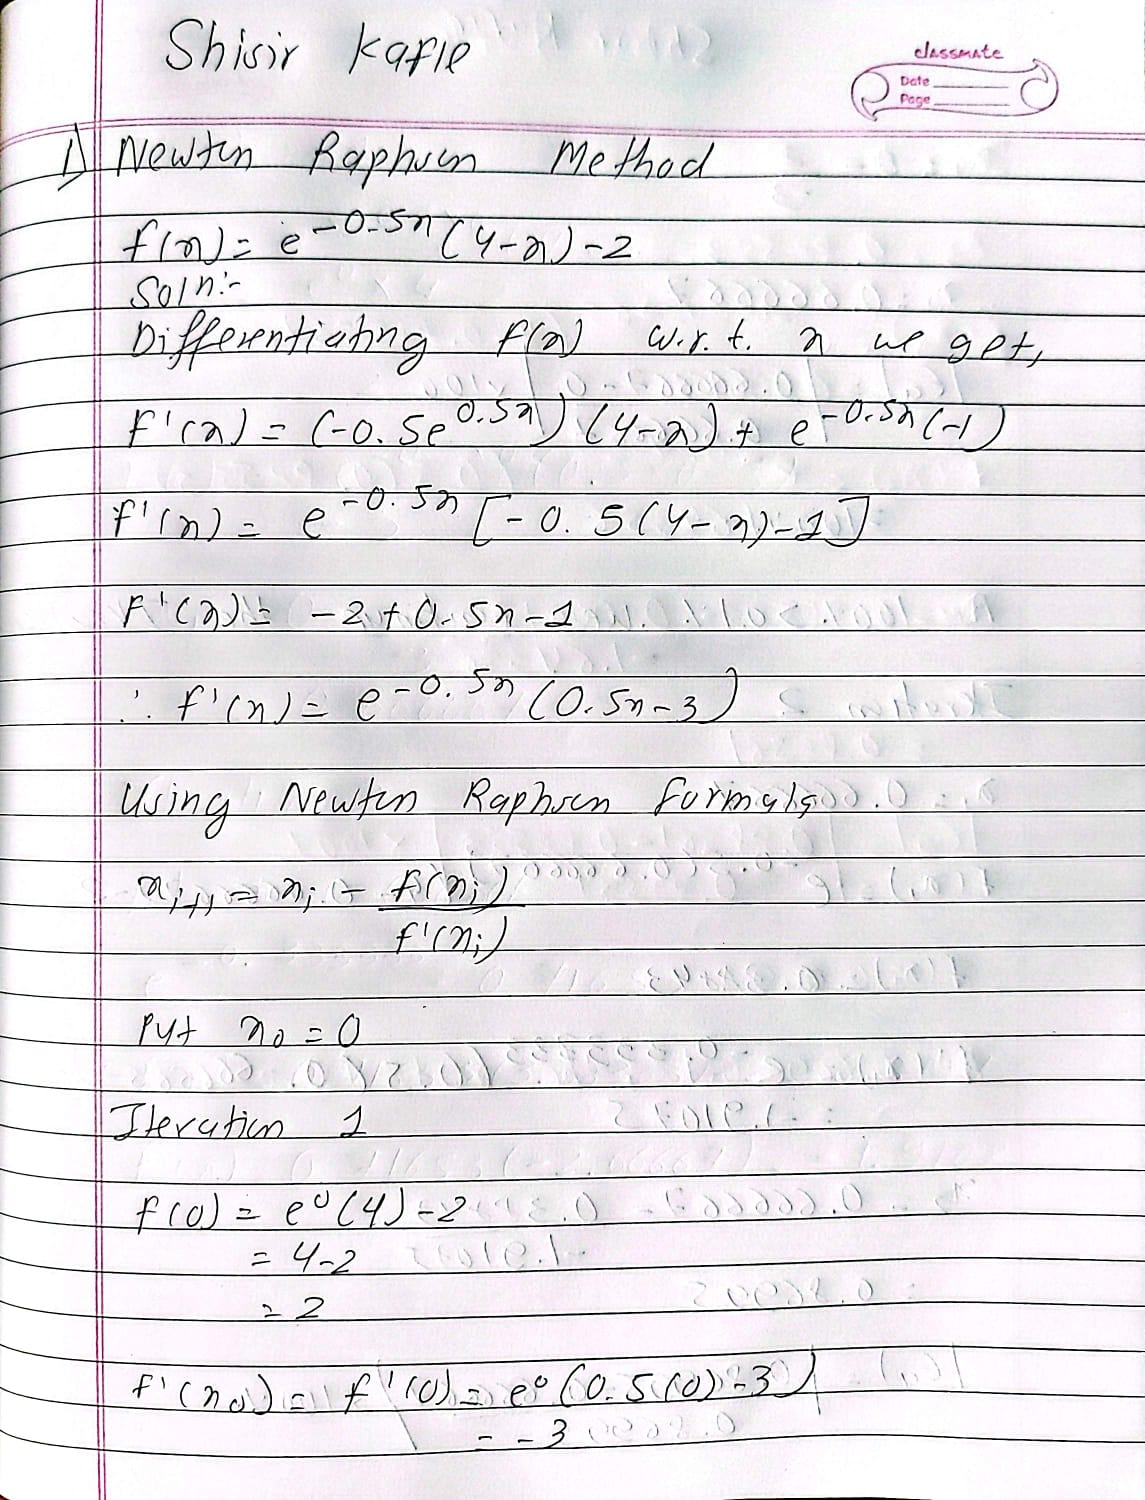 Shisir Kafle
classmate
Date
Page
1) Newton Raphson Method
f(x) = e^-0.5x (4-x) - 2
Soln:-
Differentiating f(x) w.r.t. x we get,
f'(x) = (-0.5e^0.5x) (4-x) + e^-0.5x (-1)
f'(x) = e^-0.5x [-0.5(4-x)-1]
f'(x) = -2+0.5x-1
∴ f'(x) = e^-0.5x (0.5x-3)
Using Newton Raphson formula
x_i+1 = x_i - f(x_i)
f'(x_i)
Put x_0 = 0
Iteration 1
f(0) = e^0 (4) - 2
= 4-2
= 2
f'(x_0) = f'(0) = e^0 (0.5(0)-3)
= -3